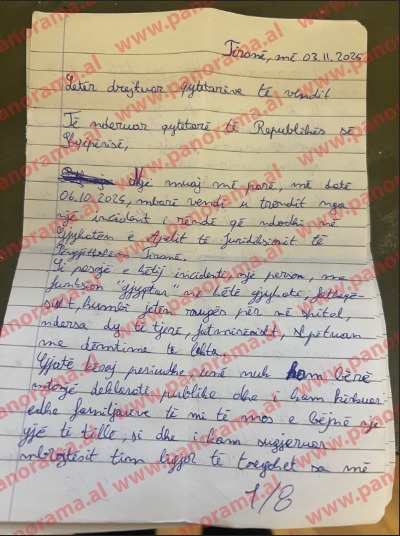 Tiranë, më 03.11.2025
Letër drejtuar qytetarëve të vendit
Të nderuar qytetarë të Republikës së
Shqipërisë,
Një muaj më parë, më datë
06.10.2025, mbarë vendi u trondit nga
një incident i rëndë që ndodhi në
Gjykatën e Apelit të Juridiksionit të
Përgjithshëm Tiranë.
Si pasojë e këtij incidenti, një person, me
funksion "gjyqtar" në këtë gjykatë, fatkeqë-
sisht, humbi jetën rrugës për në spital,
ndërsa dy të tjerë, fatmirësisht, shpëtuan
me dëmtime të lehta.
Gjatë kësaj periudhe unë nuk kam bërë
ndonjë deklaratë publike dhe i kam kërkuar
edhe familjarëve të mi të mos e bëjnë një
gjë të tillë, si dhe i kam sugjeruar
mbrojtësit tim ligjor të tregohet sa më
1/8
www.panorama.al